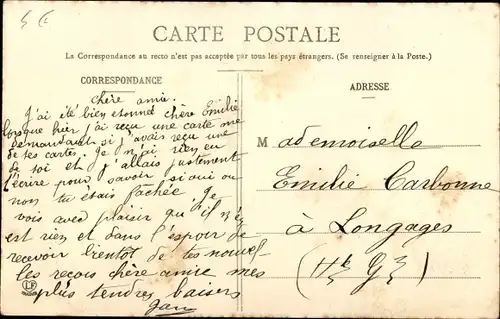 CARTE POSTALE
La Correspondance au recto n'est pas acceptée par tous les pays étrangers. (Se renseigner à la Poste.)
CORRESPONDANCE
chère amie
J'ai été bien étonné chère Emilie
lorsque hier j'ai reçu une carte me
demandant si j'avais reçu une
de tes cartes. Je n'ai rien eu
de toi et j'allais justement
t'écrire pour savoir si oui ou
non tu étais fachée. Je
vois avec plaisir qu'il n'y
est rien et dans l'espoir de
recevoir bientot de tes nouvel-
les reçois chère amie mes
plus tendres baisers
ADRESSE
Mademoiselle
Emilie Carbonne
à Longages
(Hte Gne)